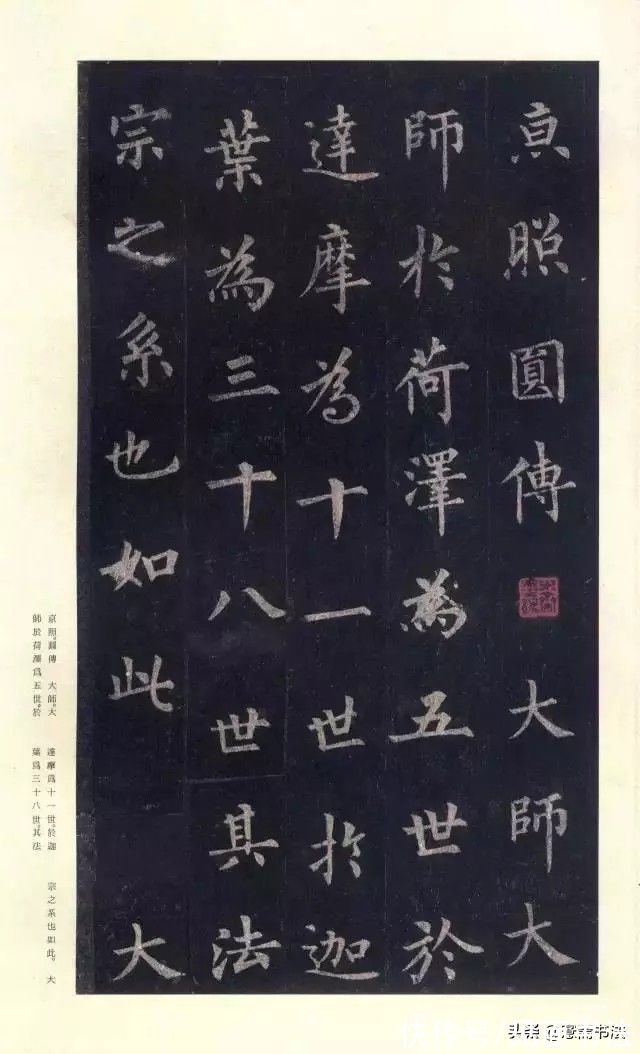 亰照圓傳 大師大
師於荷澤為五世於
達摩為十一世於迦
葉為三十八世其法
宗之系也如此 大
京照。圓傳 大師。大
師於荷澤爲五世。於
達摩爲十一世。於迦
葉爲三十八世。其法
宗之系也如此。 大
快传号/
头条 书法